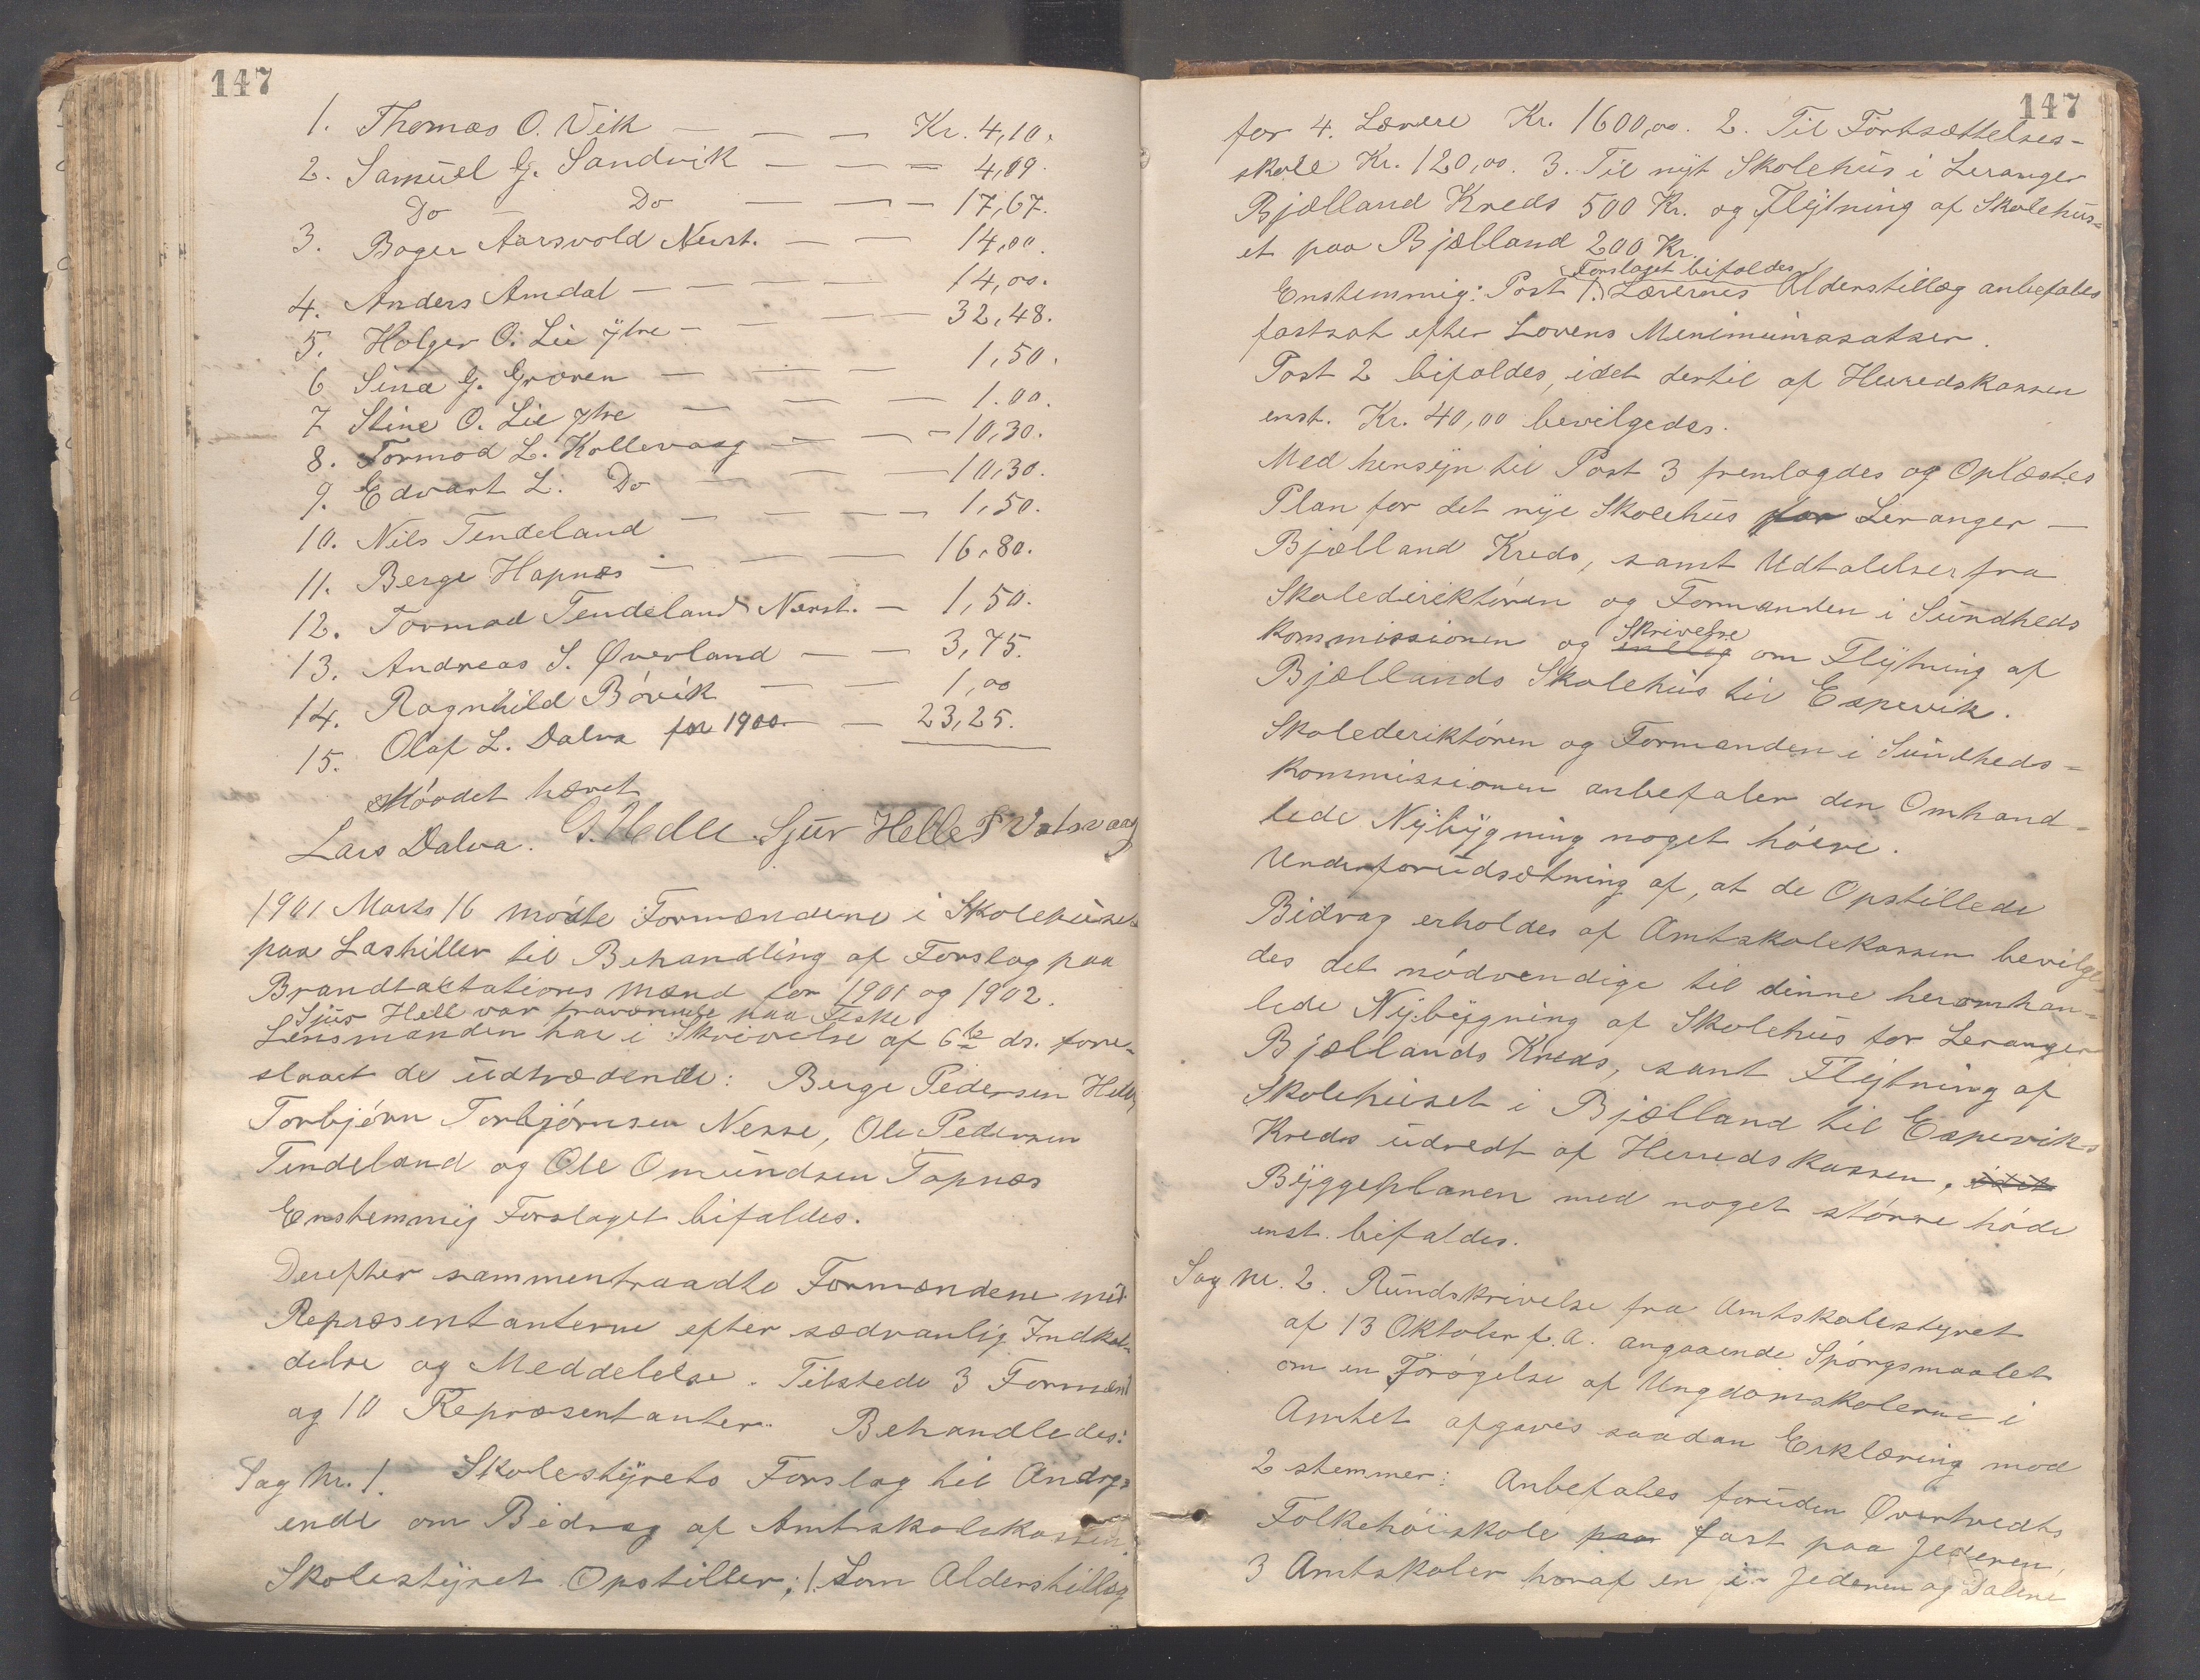 147
1. Thomas O. Vik — — — Kr. 4,10.
2. Samuel G. Sandvik — — — 4,09.
Do — Do — — — 17,67.
3. Aarsvold Nerst. — — 14,00.
4. Anders Amdal — — — — 14,00.
5. Holger O. Lie ytre — — — — 32,48.
6 Sina G. Groven — — — 1,50.
7 Stine O. Lie ytre — — — 1.00.
8. Tormod L. Kollevaag — — — 10,30.
9. Edvart L. Do — — — 10,30.
10. Nils Tendeland — — — — 1,50.
11. Berge Hapnes — — — 16,80.
12. Tormod Tendeland Nerst. — 1,50.
13. Andreas S. Øverland — — 3,75.
14. Ragnhild Bövik — — 1,00
15. Olaf L. Dalva for 1900. — — 23,25.
Mödet hævet
Lars Dalva. G. Hedle. Sjur Helle P Vatsvaag
1901 Marts 16 mödte Formændene i Skolehuset
paa Loshiller til Behandling af Forslag paa
Brandtaktations Mænd for 1901 og 1902.
Sjur Hell var fraværende paa Fiske
Lensmanden har i Skrivelse af 6te ds. fore-
slaaet de udtrædende: Berge Pedersen Helle,
Torbjörn Torbjörnsen Nesse, Ole Pedersen
Tindeland og Ole Omundsen Tapnæs
Enstemmig Forslaget bifaldes.
Derefter sammentraadte Formændene med
Repræsentanterne efter sædvanlig Indkal-
delse og Meddelelse. Tilstede 3 Formænd
og 10 Repræsentanter. Behandledes:
Sag Nr. 1. Skolestyrets Forslag til Andrag-
ende om Bidrag af Amtsskolekassen.
Skolestyret Opstiller; 1. Som Alderstillæg
147
for 4. Lærere Kr. 1600,00. 2. Til Fortsættelses-
skole Kr. 120,00. 3. Til nyt Skolehus i Leranger
Bjælland Kreds 500 Kr. og Flytning af Skolehus-
et paa Bjælland 200 Kr.
Forslaget bifaldes
Enstemmig: Post 1. Lærernes Alderstillæg anbefales
fastsat efter Lovens Menimumssatser.
Post 2 bifaldes, idet dertil af Herredskassen
enst. Kr. 40,00 bevilgedes.
Med hensyn til Post 3 fremlagdes og Oplæstes
Plan for det nye Skolehus for Leranger —
Bjælland Kreds, samt Udtalelser fra
Skoledirektören og Formanden i Sundheds
Skrivelse
kommissionen og om Flytning af
Bjællands Skolehus til Espevik.
Skolederiktören og Formanden i Sundheds-
kommissionen anbefaler den Omhand-
lede Nybygning noget höiere.
Underforudsætning af, at de Opstillede
Bidrag erholdes af Amtskolekassen bevilge
des det nödvendige til denne heromhan-
lede Nybygning af Skolehus for Leranger
Bjællands Kreds, samt Flytning af
Skolehuset i Bjælland til Espeviks
Kreds udredt af Herredskassen, idet
Byggeplanen med noget större höide
enst. bifaldes.
Sag Nr. 2. Rundskrivelse fra Amtskolestyret
af 13 Oktober f. A. angaaende Spörgsmaalet
om en Forögelse af Ungdomskolerne i
Amtet afgaves saadan Erklæring mod
2 stemmer: Anbefales foruden Øvertvedts
Folkehöiskole paa fast paa Jederen,
3 Amtskoler hvoraf en i Jederen og Dalene